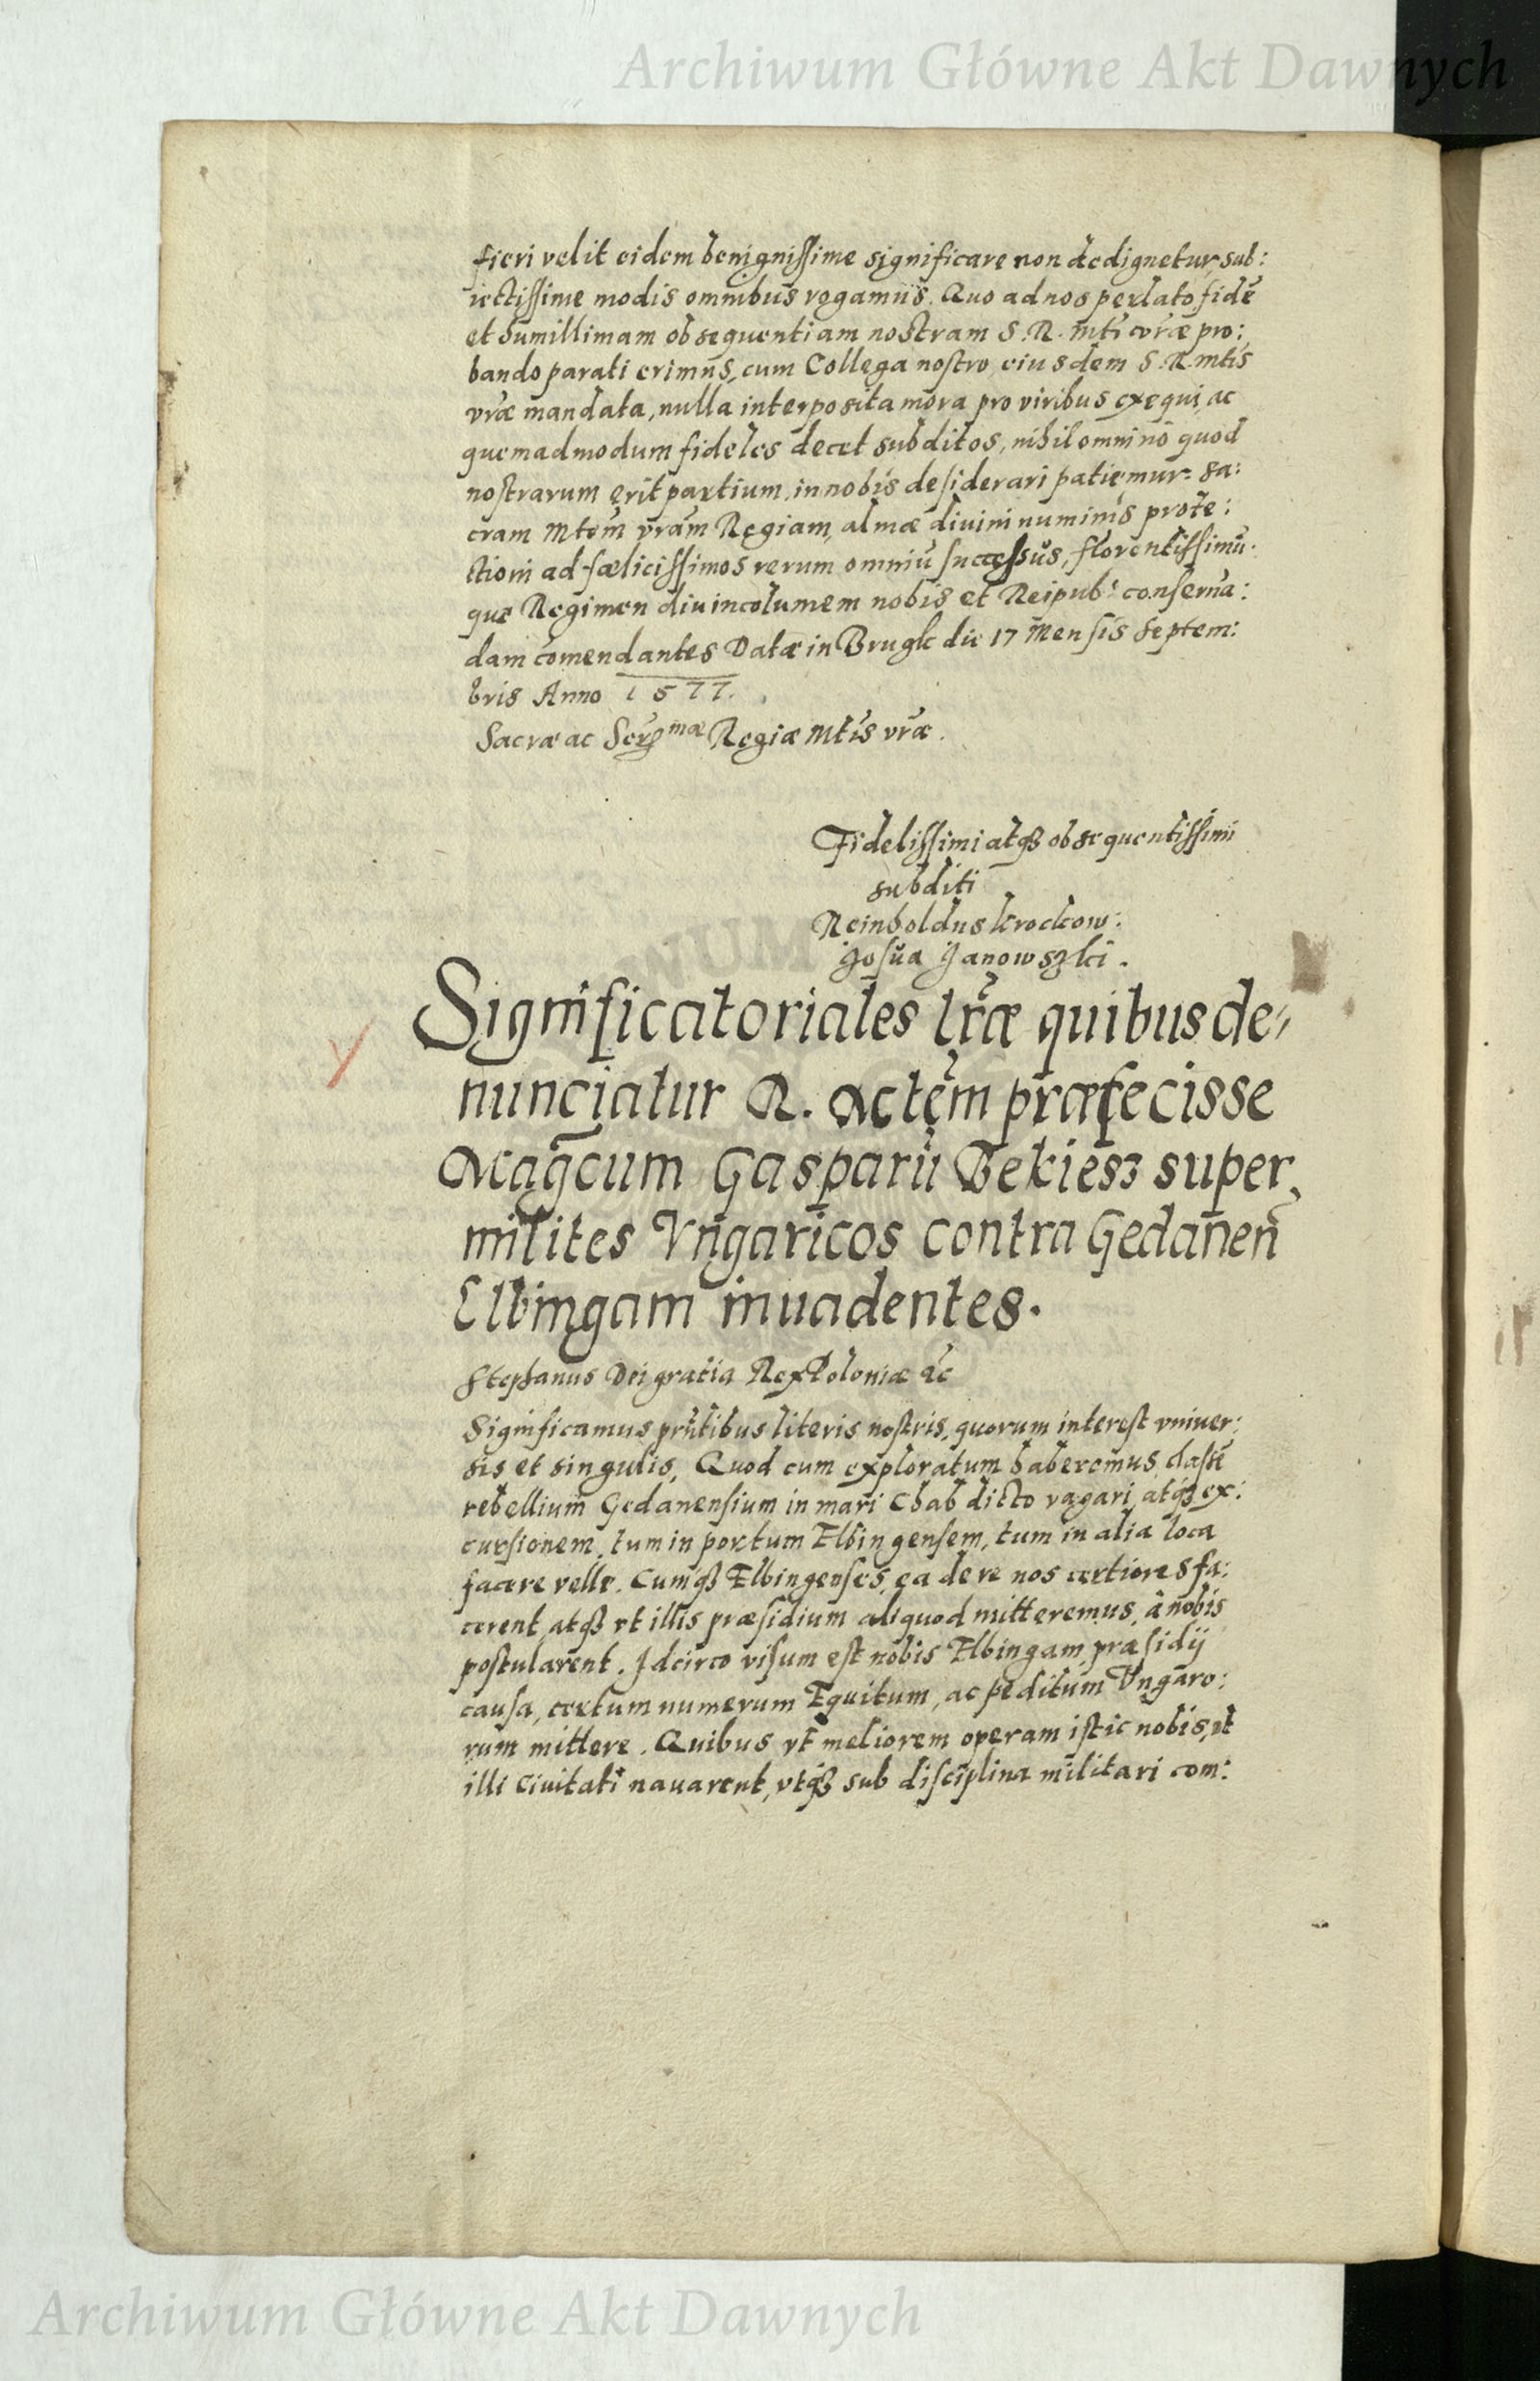 Archiwum Główne Akt Dawnych
fieri velit eidem benignissime significare non dedignetur, sub:
iectissime modis omnibus rogamus. Quo ad nos perlato fidẽ
et humillimam obsequentiam nostram S. R. Mti vr̃æ pro:
bando parati erimus, cum Collega nostro, eiusdem S. R. Mtis
vr̃æ mandata, nulla interposita mora pro viribus exequi, ac
quemadmodum fideles decet subditos, nihil omnino quod
nostrarum erit partium, in nobis desiderari patiemur. Sa:
cram Mtem̃ vram̃ Regiam, almæ divini numinis prote:
ctioni ad fœlicissimos rerum omniũ successus, florentissimũ
que Regimen diu incolumem nobis et Reipub: conserua:
dam com̃endantes Datæ in Brugk die 17 Mensis Septem:
bris Anno 1577.
Sacræ ac Serꝫmæ Regiæ Mtis vr̃æ.
Fidelissimi atqꝫ obsequentissimi
subditi
Reinholdus krockow:
Josua Janowszki.
Significatoriales lr̃æ quibus de-
nunciatur R. Mctem̃ præfecisse
Magcum Gasparũ Bekiesz super
milites Vngaricos contra Gedaneñ
Elbingam inuadentes.
Stephanus Dei gratia Rex Poloniæ &c
Significamus prñtibus literis nostris, quorum interest vniuer:
sis et singulis, Quod cum exploratum haberemus, classẽ
rebellium Gedanensium in mari Chab dicto vagari, atqꝫ ex:
cursionem, tum in portum Elbingensem, tum in alia loca
facere velle. Cumqꝫ Elbingenses, ea de re nos certiores fa:
cerent, atqꝫ vt illis præsidium aliquod mitteremus, à nobis
postularent. Idcirco visum est nobis Elbingam, præsidij
causa, certum numerum Equitum, ac peditum Vngaro:
rum mittere. Quibus vt meliorem operam istic nobis, et
illi Ciuitati nauarent, vtqꝫ sub disciplina militari com:
Archiwum Główne Akt Dawnych